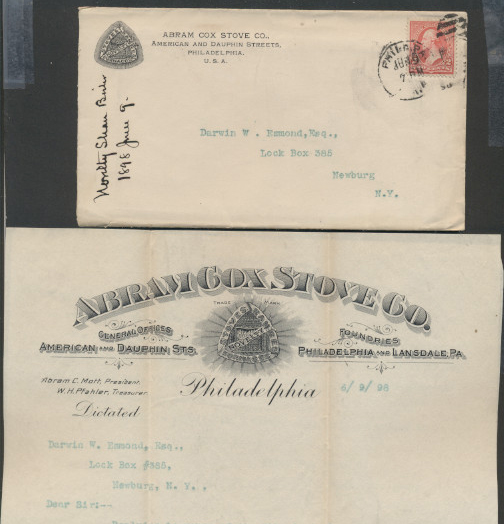 ABRAM COX STOVE CO.,
AMERICAN AND DAUPHIN STREETS,
PHILADELPHIA.
U. S. A.
1898 June 9.
Darwin W. Esmond,Esq.,
Lock Box 385
Newburg
N.Y.
ABRAM COX STOVE CO.
TRADE MARK
GENERAL OFFICES
AMERICAN AND DAUPHIN STS.
FOUNDRIES
PHILADELPHIA AND LANSDALE, PA.
Abram C. Mott, President
W. H. Pfahler, Treasurer
Philadelphia
6/9/98
Dictated
Darwin W. Esmond, Esq.,
Lock Box #385,
Newburg, N. Y. .
Dear Sir:--